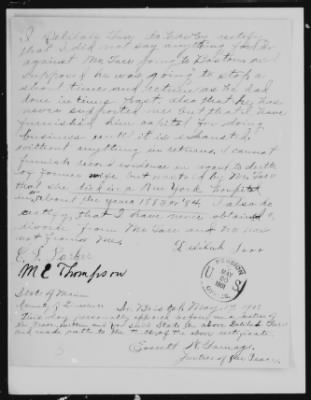 I Delilah Tarr do hereby certify
that I did not say anything
against Mr. Tarr going to Eastern and
supposed he was going to stop a
short time and return as he had
done in times past, also that he has
never supported me but that I have
furnished him for doing
business until it is exhausted
without anything in returns, I cannot
furnish record evidence in regard to death
of former wife but was told by Mr Tarr
that she died in a New York Hospital
in about the years 1883 or 84. I also do
certify that I have never obtained a
divorce from Mr Tarr and he has
not from me.
Delilah Tarr
M E Thompson
PENSION
U S
MAY
20
1901
OFFICE
State of Maine
County of Lincoln SS Bristol May 17 1901
This day personally appeared before me a Justice of
the Peace within and for said State the above Delilah Tarr
and made oath to the truth of the above certificate.
Everett W. Gamage
Justice of the Peace